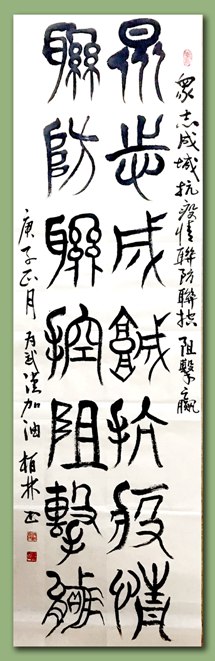 眾志成城抗疫情聯防聯控阻擊贏
眾志成城抗疫情
聯防聯控阻擊贏
庚子正月為武漢加油柏林書